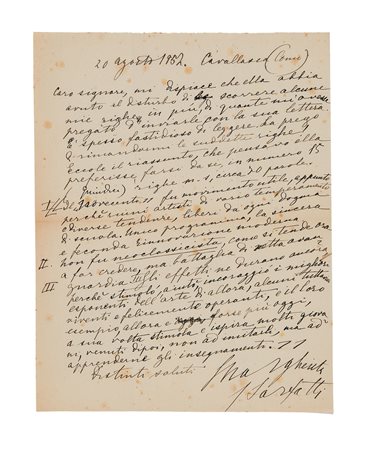 20 agosto 1952. Cavallasca (Como)
Caro signore, mi dispiace che Ella abbia
avuto il disturbo di scorrere alcune
mie righe in più, di quante mi aveva
pregato d'inviarle con la sua lettera.
È spesso fastidioso di leggere.
di rimandarmi le suddette righe?
Eccole il riassunto, che pensavo Ella
preferisse farsi da sé, in numero 15
(quindici) righe m. s. circa 90 parole.
I/ Il "Novecento" fu movimento utile, appunto
perchè riunì artisti di vario temperamento
e diverse tendenze, liberi da ogni dogma
di scuola. Unico programma, la sincera
e feconda rinnovazione moderna.
II. Non fu neoclassicista, come si tende ora
a far credere, ma battaglia di netta avan-
guardia.
III Gli effetti ne durano ancora
perchè stimolò, aiutò, incoraggiò i migliori
esponenti dell'arte di allora, alcuni tuttora
viventi e felicemente operanti, e il loro
esempio, allora e forse più oggi,
a sua volta stimola e ispira molti giova-
ni, venuti dopo, non ad imitarli, ma ad
apprenderne gli insegnamenti.
Distinti saluti
Margherita
Sarfatti